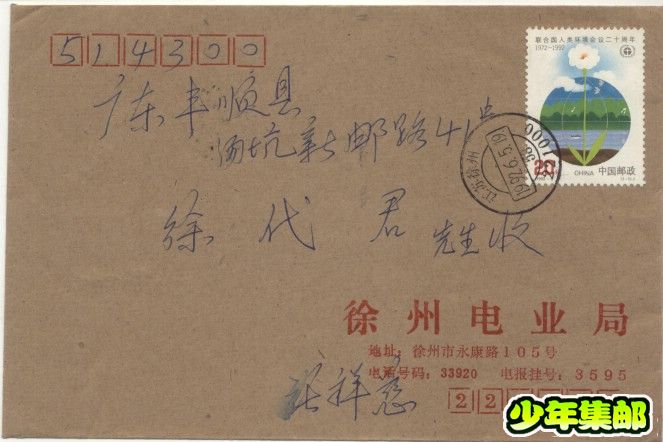 514300
联合国人类环境会议二十周年
1972-1992
广东丰顺县
汤坑新邮路41号
20
CHINA 中国邮政
江苏徐州
徐代君 先生收
徐州电业局
地址：徐州市永康路105号
电话号码：33920 电报挂号：3595
张祥
22
少年集邮